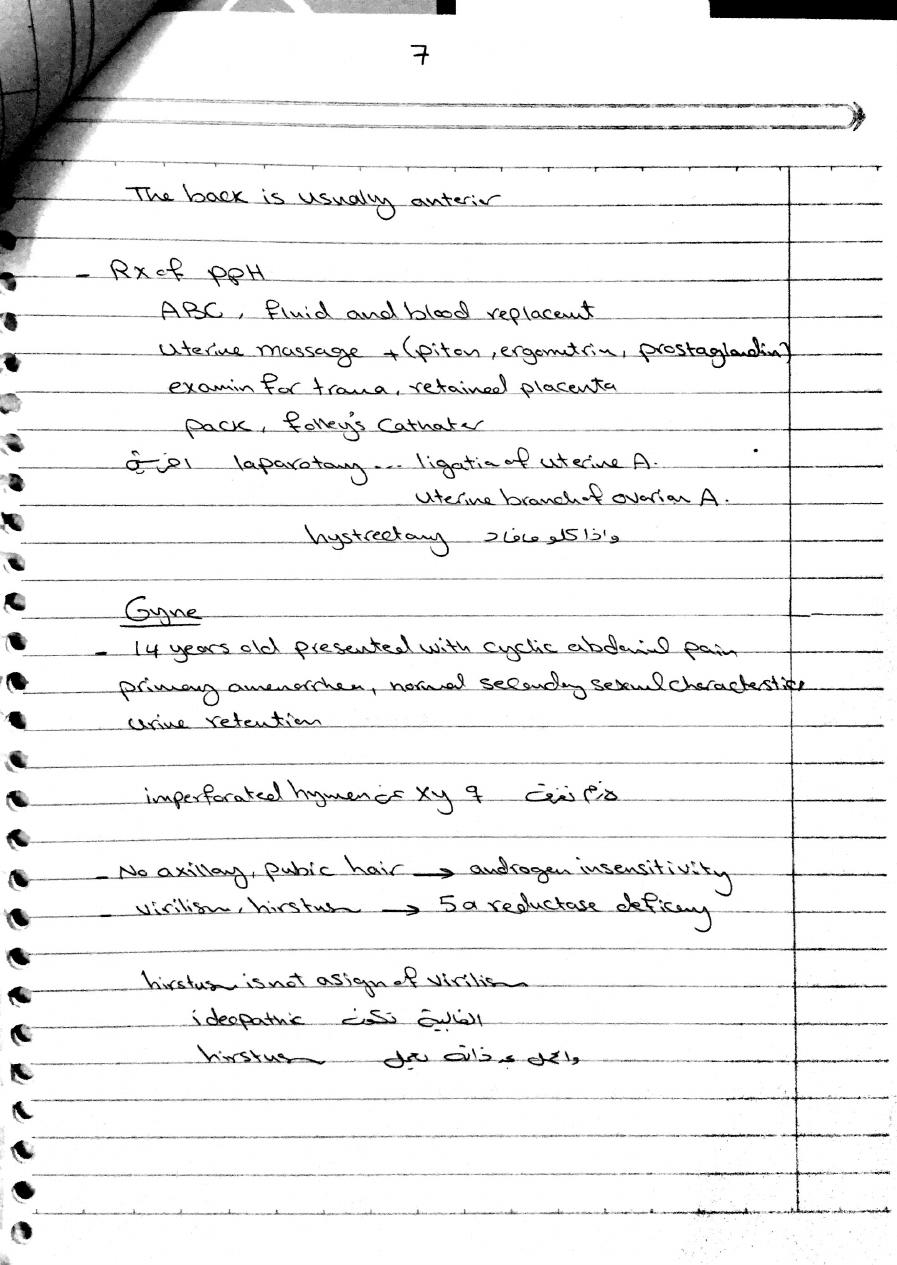 7
The back is usualy anterior
- Rx of PPH
ABC, fluid and blood replacent
uterine massage + (piton, ergometrin, prostaglandin)
examin for trama, retained placenta
pack, folley's Cathater
laparotomy ... ligatia of uterine A.
uterine branch of ovarian A.
hystrectomy واذا كلو مافاد
Gyne
- 14 years old presented with cyclic abdominl pain
primary amenorrhea, normal secondry sexual charactestics
urine retention
imperforated hymen xy
- No axillary, pubic hair → androgen insensitivity
- virilism, hirstusm → 5α reductase deficency
hirstusm is not a sign of virilism
ideopathic تكون الغالبية
hirstusm